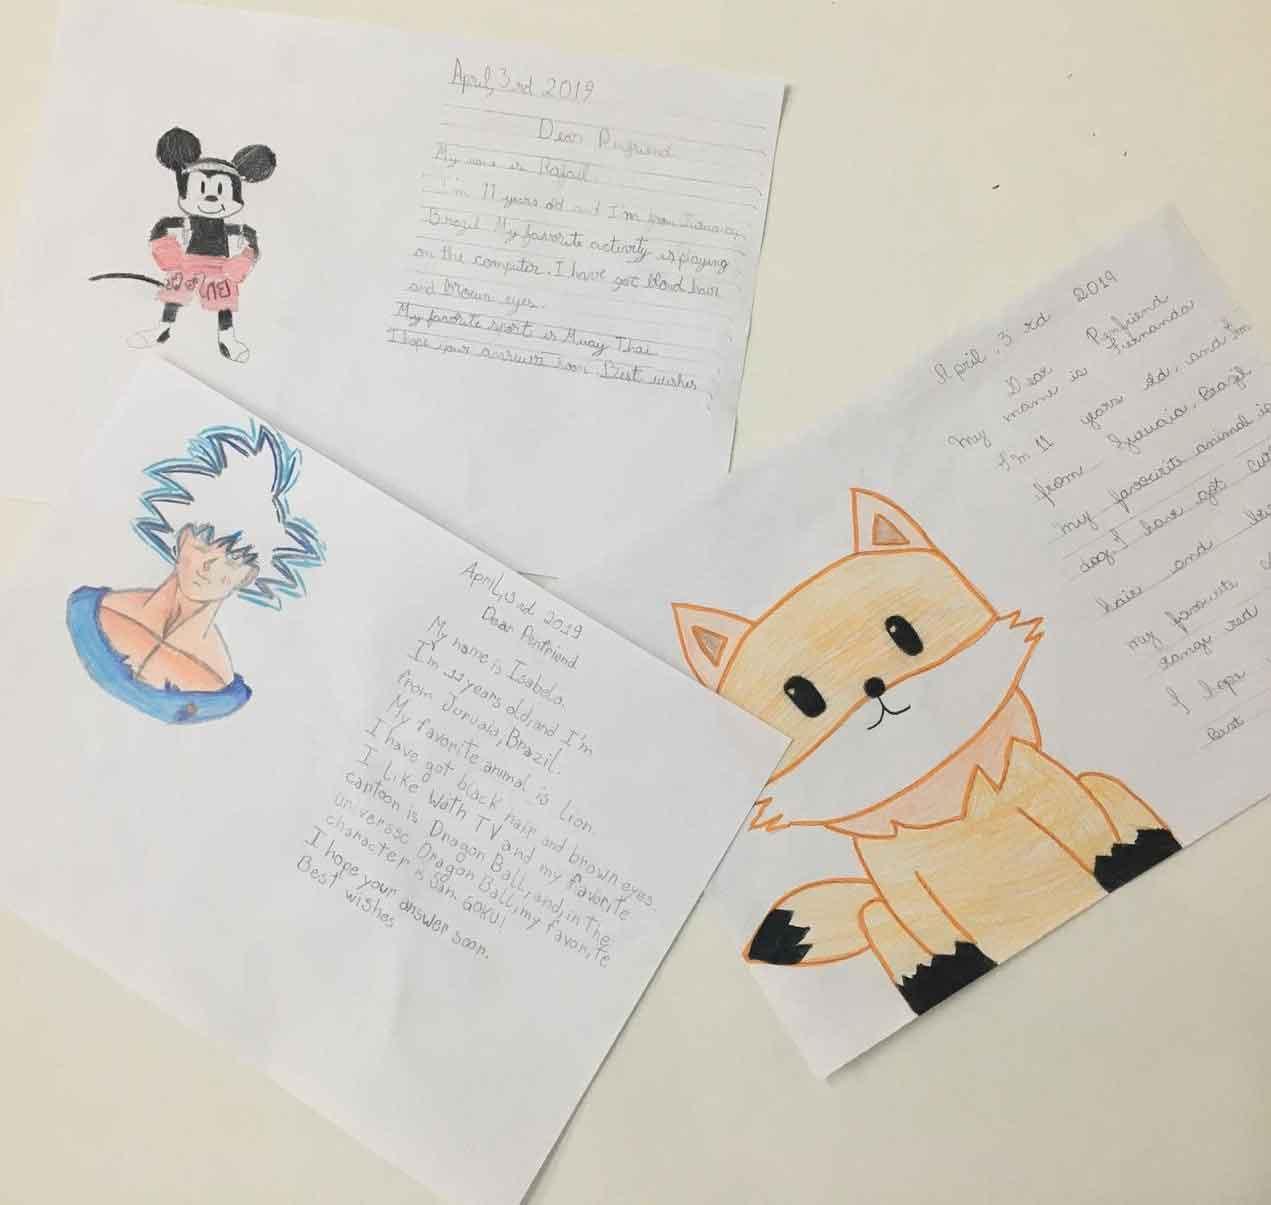 April, 3 rd 2019
Dear Penfriend
My name is Rafael.
I'm 11 years old and I'm from
Brazil. My favorite activity is playing
on the computer. I have got blond hair
and brown eyes.
My favorite sport is Muay Thai
I hope your answer soon Best wishes
April, 3 rd 2019
Dear Penfriend
My name is Isabela.
I'm 11 years old, and I'm
from Juruaia, Brazil.
My favorite animal is Lion
I have got black hair and brown eyes.
I Like Wath TV and my favorite
cartoon is Dragon Ball, and, in the
universe Dragon Ball, my favorite
character is San. GOKU!
I hope your answer soon.
Best wishes
April, 3 rd 2019
Dear Penfriend
my name is Fernanda
I'm 11 years old, and I'm
from Juruaia, Brazil
my favourite animal is
dog. I have got
hair and
my favourite
range red
I hope
Best